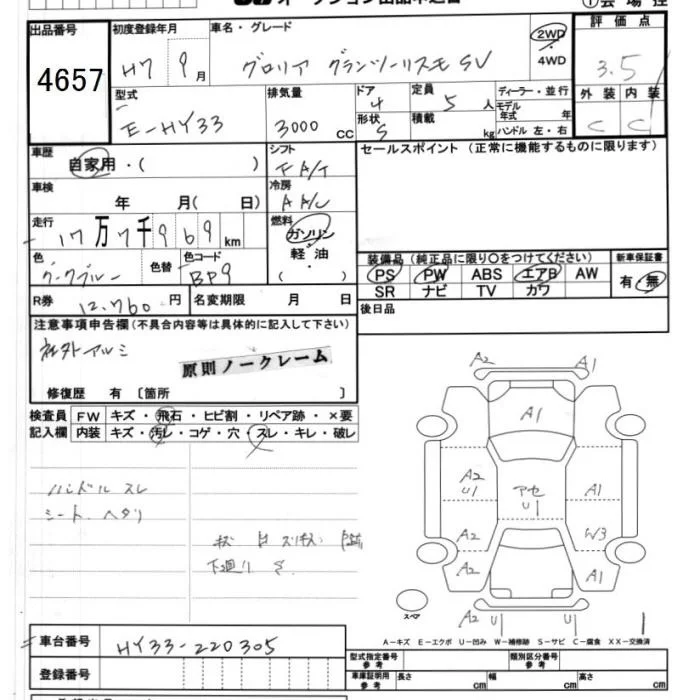 出品番号 4657
初度登録年月 H7 9月
車名・グレード グロリア グランツーリスモ SV
2WD
4WD
評価点 3.5
型式 E-HY33
排気量 3000 cc
ドア 4
形状 S
定員 5 人
積載 kg
ディーラー・並行
モデル年式 年
ハンドル 左・右
外装 C
内装 C
車歴 自家用・( )
シフト FA/T
セールスポイント(正常に機能するものに限ります)
車検 年 月( 日)
冷房 AAC
走行 17万7千969km
燃料 ガソリン・軽油・( )
色 ダークブルー
色替
色コード BP9
装備品(純正品に限り○をつけてください)
新車保証書 有・無
PS PW ABS エアB AW
SR ナビ TV カワ
R券 12,760円
名変期限 月 日
後日品
注意事項申告欄(不具合内容等は具体的に記入して下さい)
社外アルミ
原則ノークレーム
修復歴 有〔箇所 〕
検査員記入欄
FW キズ・飛石・ヒビ割・リペア跡・×要
内装 キズ・汚レ・コゲ・穴・スレ・キレ・破レ
ハンドル スレ
シート ヘタリ
下廻り サ
A2 A1
A1
A2 U1
アセ U1
A1
A2
W3
A2
A1
スペア
A2 U1 U1
A-キズ E-エクボ U-凹み W-補修跡 S-サビ C-腐食 XX-交換済
車台番号 HY33-220305
登録番号
型式指定番号 参考
類別区分番号 参考
車庫証明用 参考 長さ cm 幅 cm 高さ cm